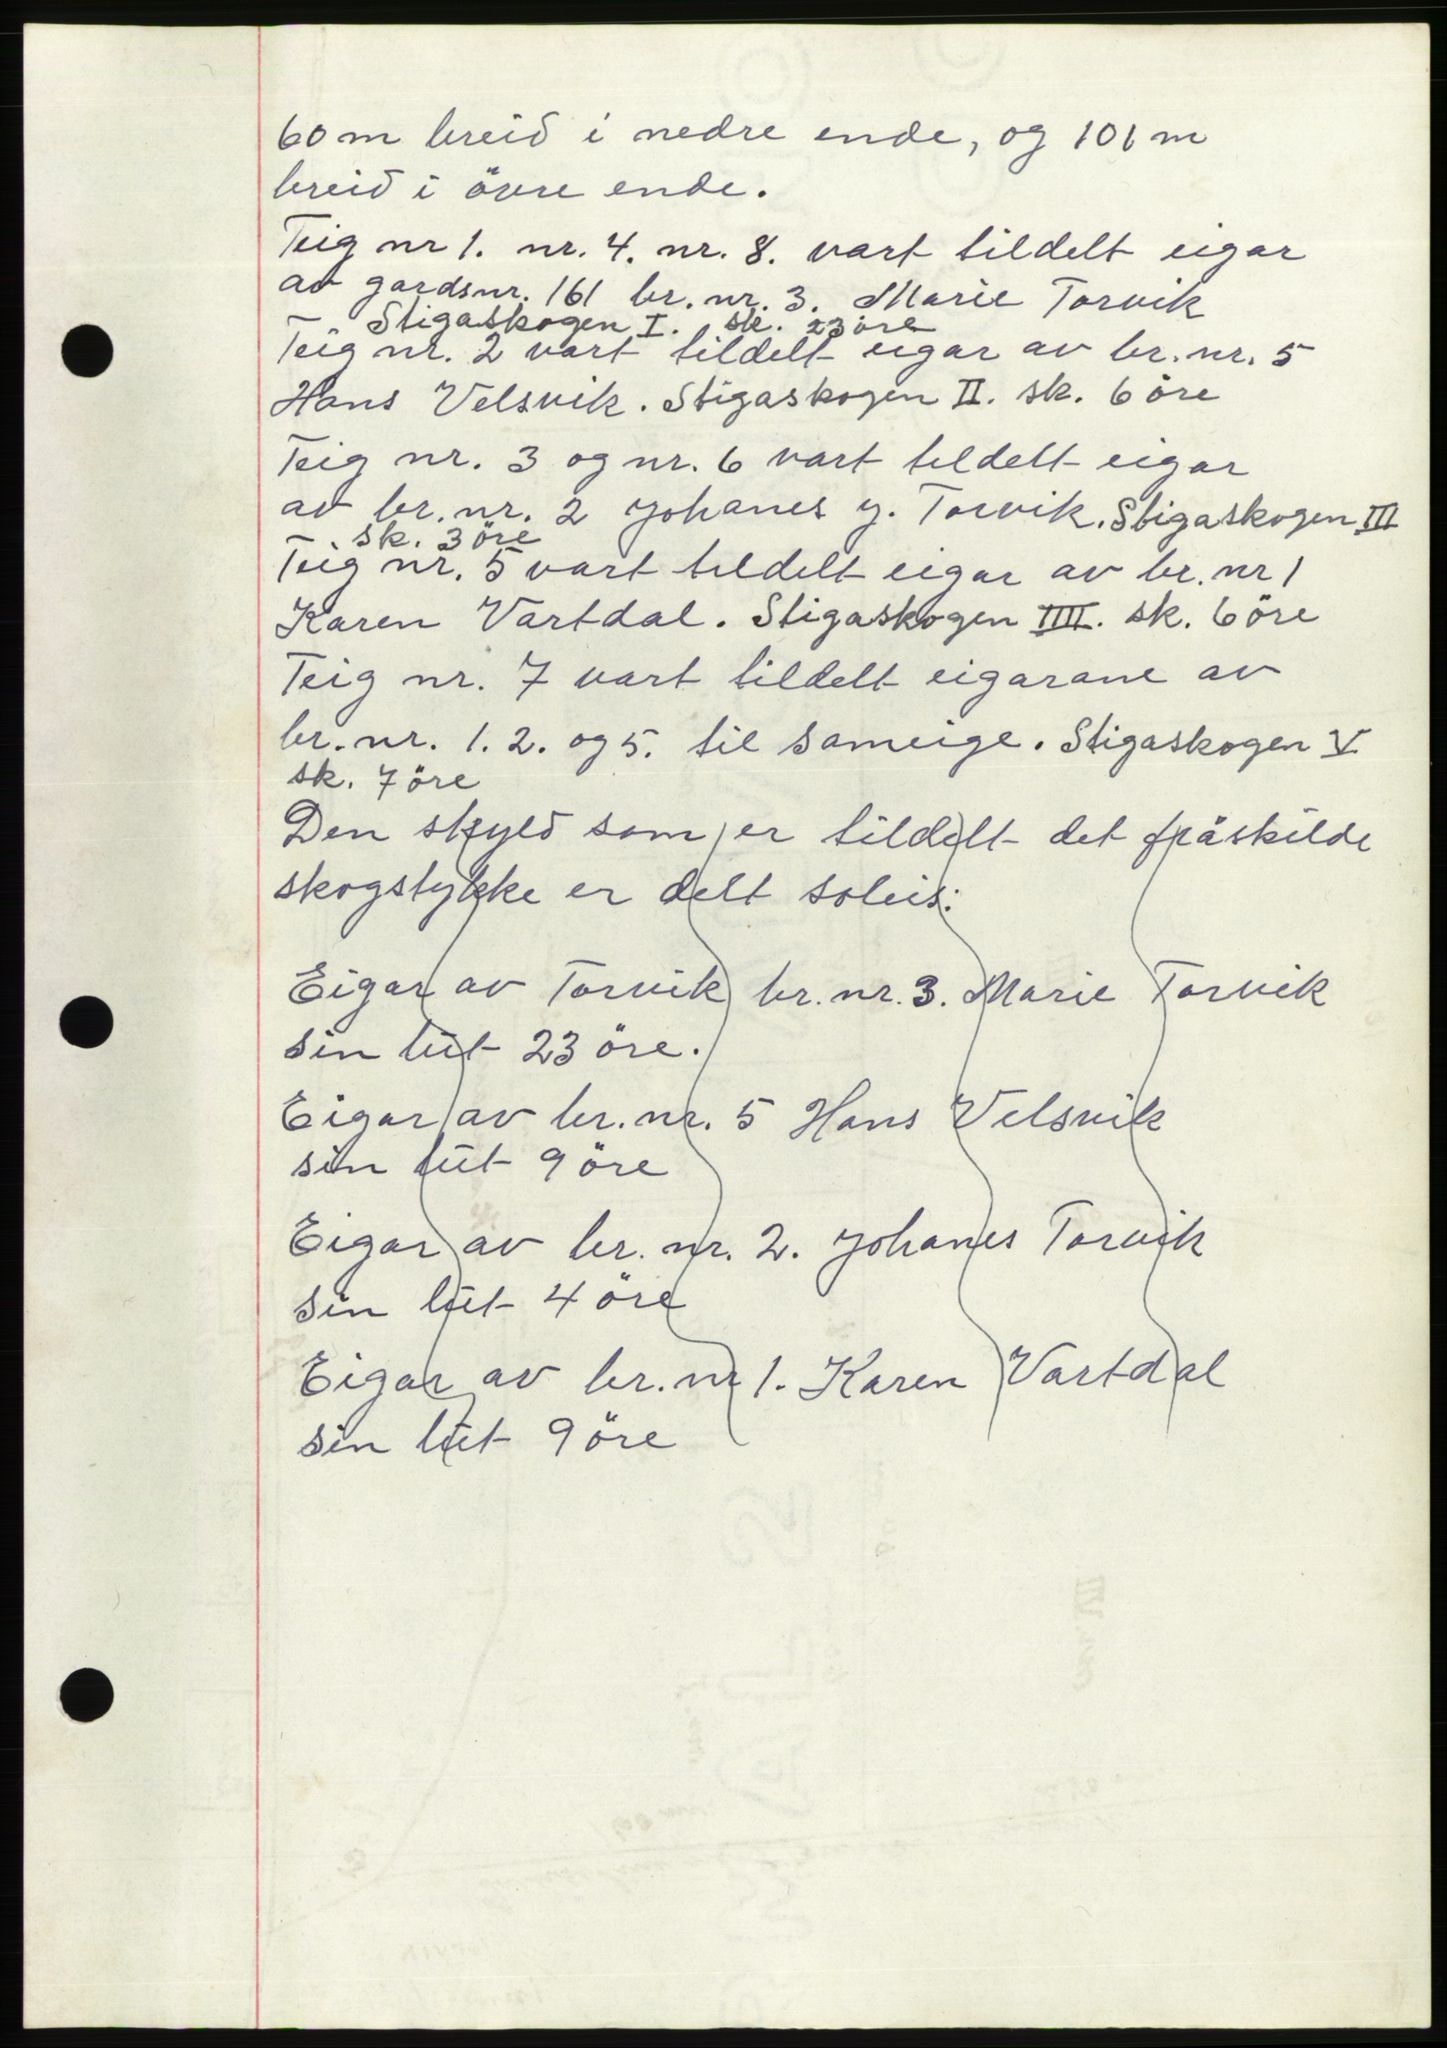 60 m breid i nedre ende, og 101 m
breid i övre ende.
Teig nr 1. nr. 4. nr. 8. vart tildelt eigar
av gardsnr. 161 br. nr. 3. Marie Torvik
Stigaskogen I. sk. 23 öre
Teig nr. 2 vart tildelt eigar av br. nr. 5
Hans Velsvik. Stigaskogen II. sk. 6 öre
Teig nr. 3 og nr. 6 vart tildelt eigar
av br. nr. 2 Johanes J. Torvik. Stigaskogen III
sk. 3 öre
Teig nr. 5 vart tildelt eigar av br. nr 1
Karen Vartdal. Stigaskogen IIII. sk. 6 öre
Teig nr. 7 vart tildelt eigarane av
br. nr. 1. 2. og 5. til sameige. Stigaskogen V
sk. 7 öre
Den skyld som er tildelt det fråskilde
skogstykke er delt soleis:
Eigar av Torvik br. nr. 3. Marie Torvik
sin lut 23 öre.
Eigar av br. nr. 5 Hans Velsvik
sin lut 9 öre
Eigar av br. nr. 2. Johanes Torvik
sin lut 4 öre
Eigar av br. nr 1. Karen Vartdal
sin lut 9 öre